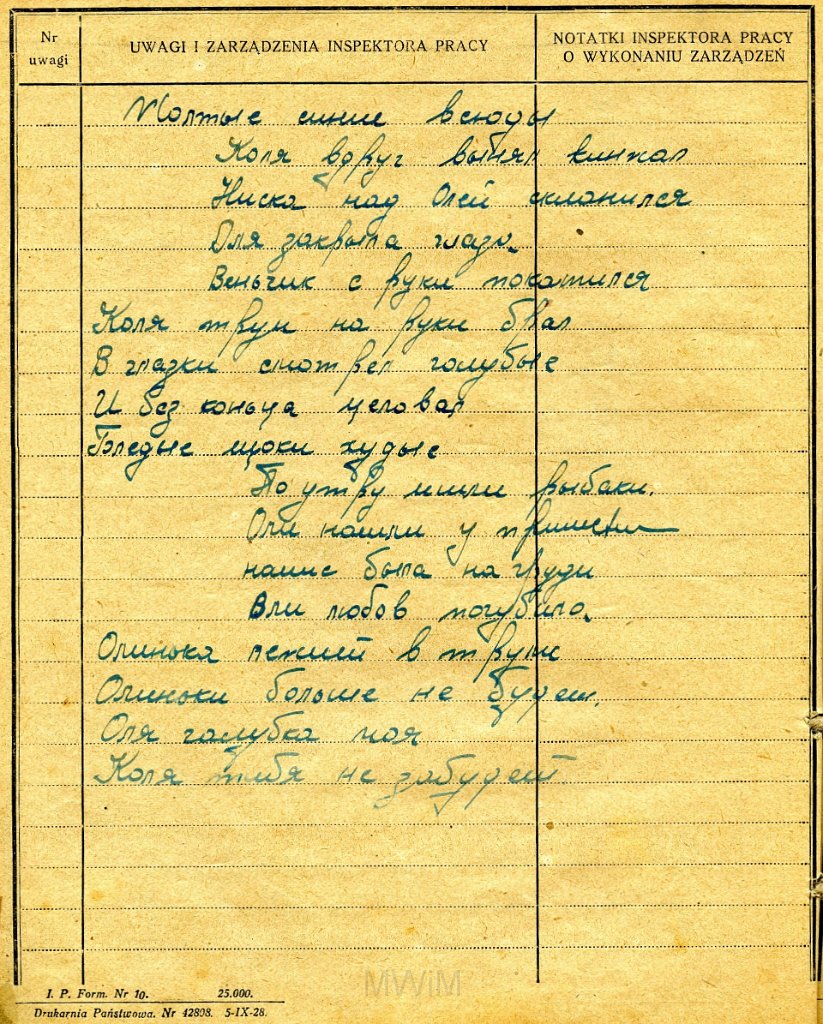 Nr uwagi
UWAGI I ZARZĄDZENIA INSPEKTORA PRACY
NOTATKI INSPEKTORA PRACY
O WYKONANIU ZARZĄDZEŃ
Молтые синие всюды
Коля вдруг вынял кинжал
Ниска над Олей склонился
Оля закрыла глаза
Веньчик с руки покатился
Коля труп на руки брал
В глазки смотрел голубые
И без коньца целовал
Бледые щоки худые
По утру ишли рыбаки.
Оли нашли у
напис была на груди
Вли любов погубила.
Олинька лежией в трупе
Олиньки больше не будет.
Оля голубка моя
Коля тибя не забудет
I. P. Form. Nr 10. 25.000.
Drukarnia Państwowa. Nr 42898. 5-IX-28.
MWiM